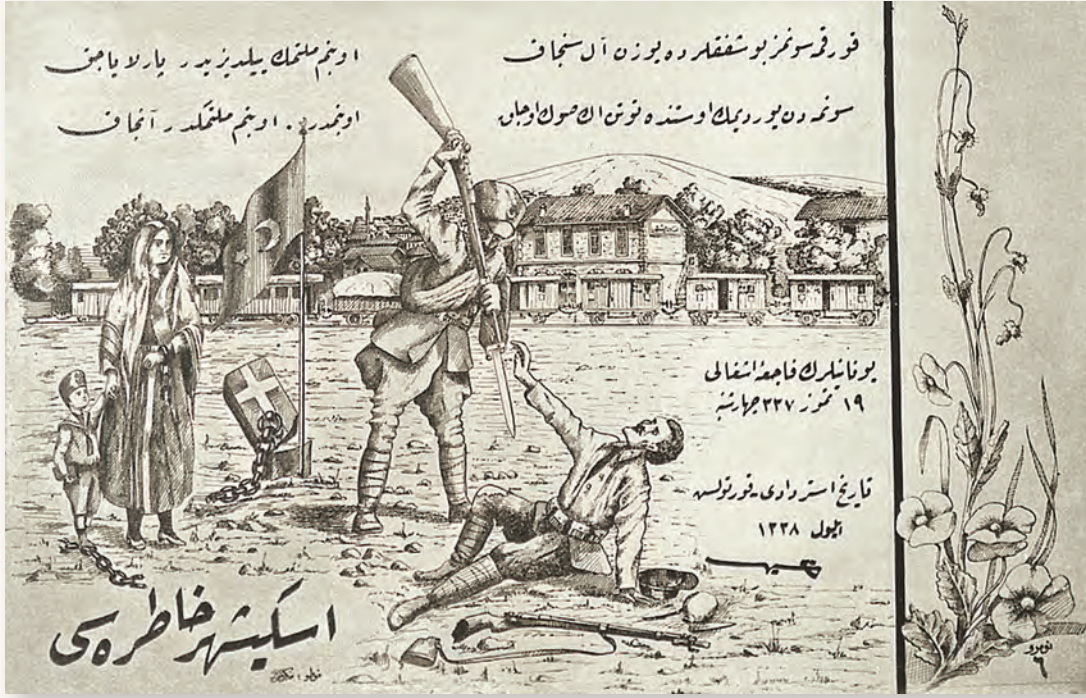 قورقمه سونمز بو شفقلرده یوزن آل سنجاق
سونمه دن یوردیمك اوستنده توتن اك صوك اوجاق
او بنم ملتمك ییلدیزیدر پارلایاجق
او بنمدر .. او بنم ملتمكدر آنجاق
یونانیلرك فاجعهٔ اشغالی
١٩ تموز ٣٣٧ چهارشنبه
تاریخ استردادی
ایلول ١٣٣٨
اسکیشهر خاطره سی
نومرو
٦